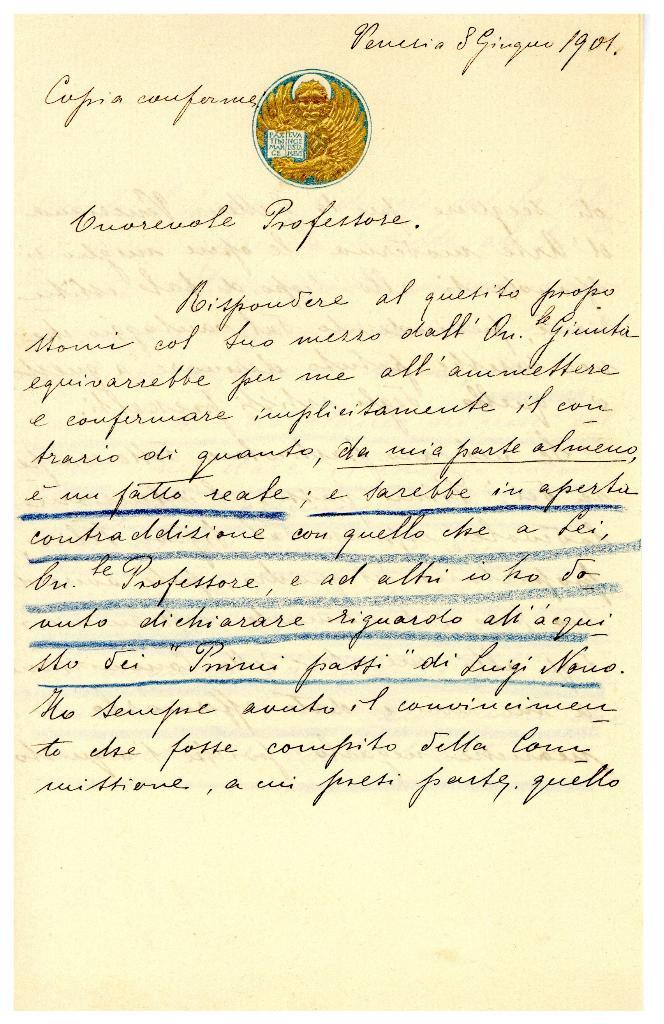 Venezia 8 Giugno 1901.
Copia conforme
PAX TI EVA
TIBI NGE
MAR LISTA
CE MEVS
Onorevole Professore.
Rispondere al quesito propo
stomi col Suo mezzo dall' On.le Giunta
equivarrebbe per me all' ammettere
e confermare implicitamente il con
trario di quanto, da mia parte almeno,
è un fatto reale; e sarebbe in aperta
contraddizione con quello che a Lei,
On.le Professore, e ad altri io ho do
vuto dichiarare riguardo all' acqui
sto dei "Primi passi" di Luigi Nono.
Ho sempre avuto il convincimen
to che fosse compito della Com
missione, a cui presi parte, quello